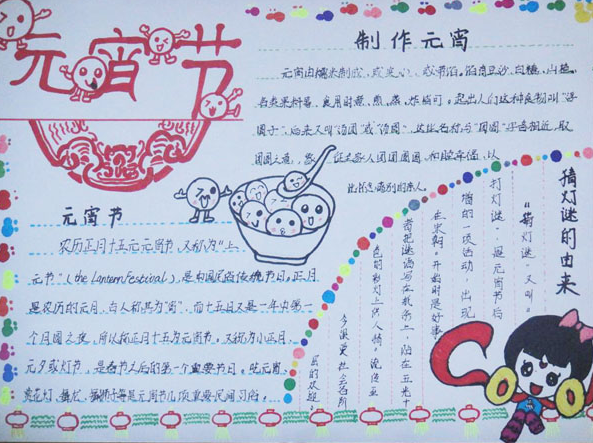 元宵节
制作元宵
元宵由糯米制成,或实心,或带馅。馅有豆沙、白糖、山楂、
各类果料等,食用时煮、煎、蒸、炸皆可。起出人们这种食物叫“浮
圆子”,后来又叫“汤团”或“汤圆”,这些名称与“团圆”字音相近,取
团圆之意,象征全家人团团圆圆,和睦幸福,以
此怀念离别的亲人。
元宵节
农历正月十五元元宵节,又称为“上
元节”(the Lantern Festival),是中国民俗传统节日。正月
是农历的元月,古人称其为“宵”,而十五日又是一年中第一
个月圆之夜,所以称正月十五为元宵节。又称为小正月、
元夕或灯节,是春节之后的第一个重要节日。吃元宵、
赏花灯、舞龙、舞狮子等是元宵节几项重要民间习俗。
猜灯谜的由来
“猜灯谜”又叫“
打灯谜”是元宵节后
增的一项活动,出现
在宋朝。开始时是好事
者把谜语写在纸条上,贴在五光十
色的彩灯上供人猜。
今深受社会各阶
层的欢迎。